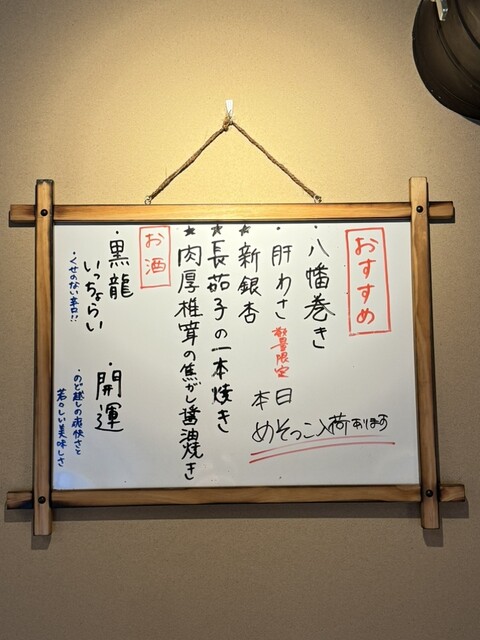 おすすめ
・八幡巻き
・肝わさ 数量限定
★新銀杏
★長茄子の一本焼き
★肉厚椎茸の焦がし醤油焼き
本日
めそっこ入荷あります
お酒
・黒龍
いっちょらい
・くせのない辛口!!
・開運
・のど越しの爽快さと
若々しい美味しさ